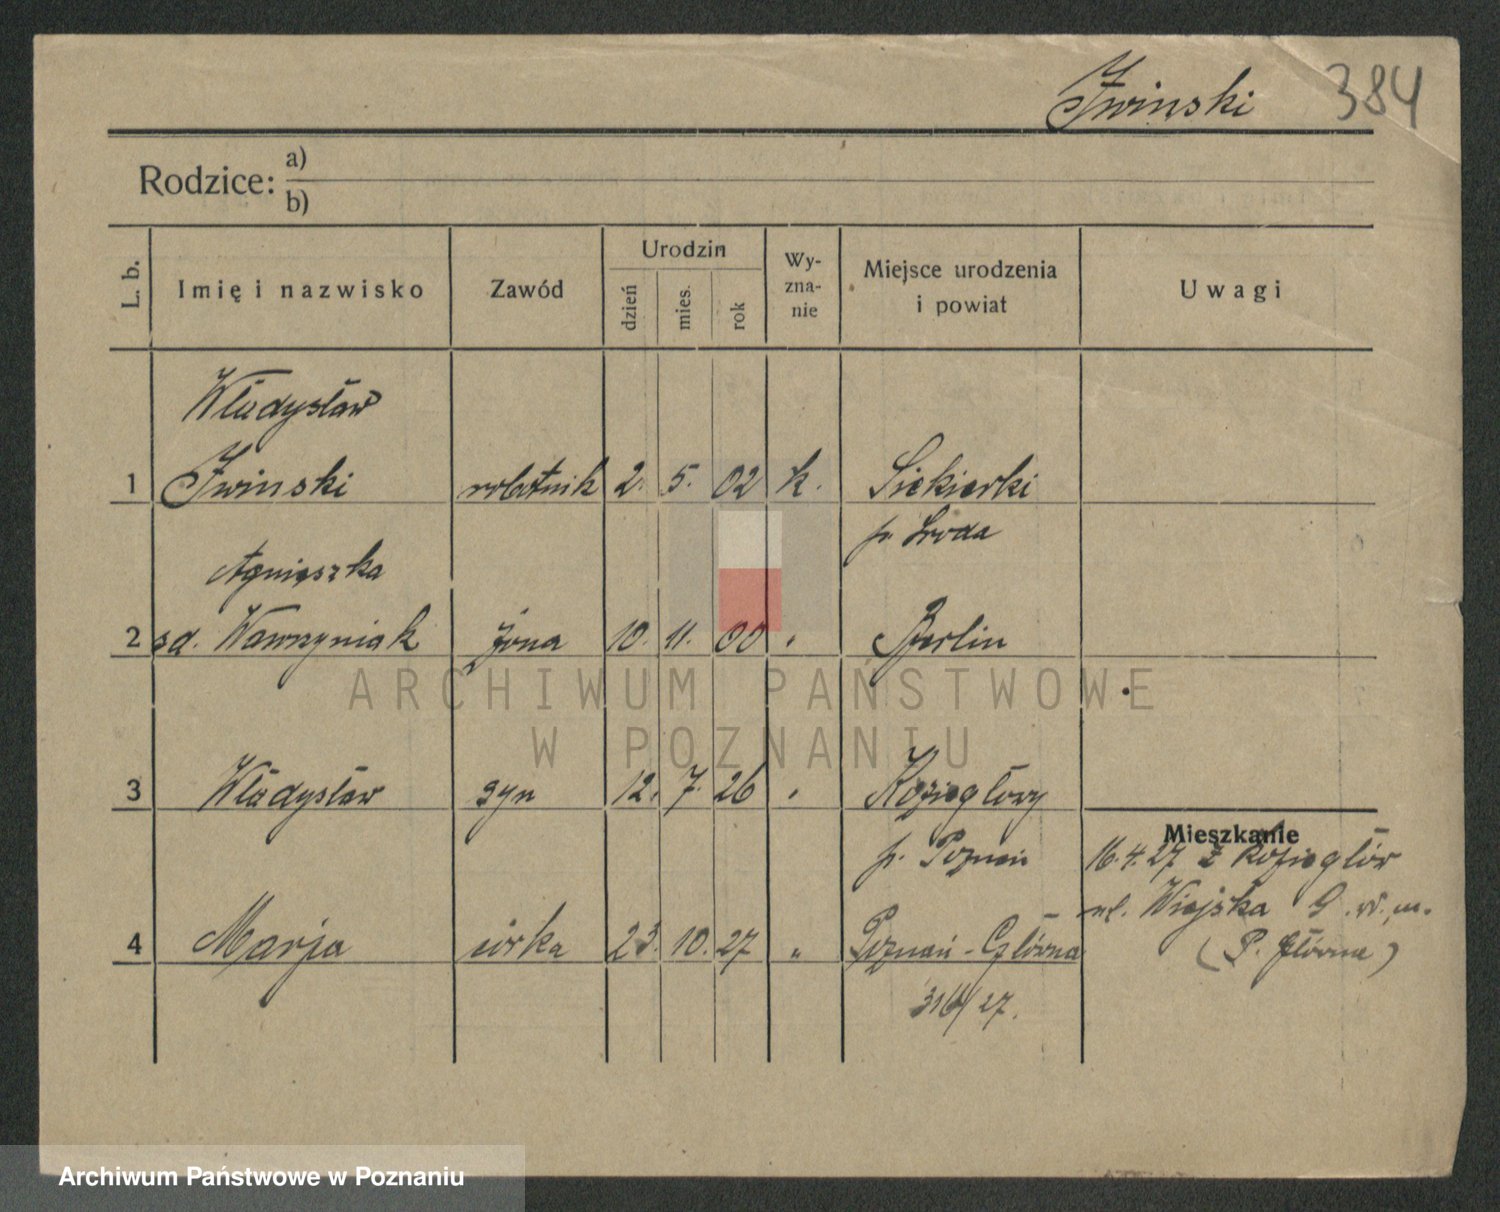 Iwinski 384
Rodzice: a)
b)
L. b. Imię i nazwisko Zawód Urodzin dzień mies. rok Wy-zna-nie Miejsce urodzenia i powiat Uwagi
Władysław
1 Iwinski robotnik 2. 5. 02 k. Siekierki
p. Sroda
Agnieszka
2 sd. Wawrzyniak żona 10. 11. 00 " Berlin
ARCHIWUM PAŃSTWOWE
W POZNANIU
3 Władysław syn 12. 7. 26 " Kozieglowy
Mieszkanie
p. Poznań 16.4.27 z Koziegłów
ul. Wiejska
4 Marja córka 23. 10. 27 " Poznań-Główna (P. Główna)
27.
Archiwum Państwowe w Poznaniu